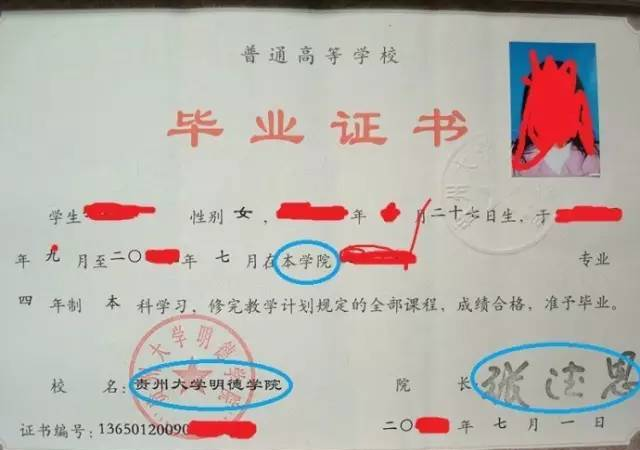 普通高等学校
毕业证书
学生 性别 女，年 月二十六日生，于
年 九 月至二〇 年 七 月在本学院 专业
四 年制 本 科学习，修完教学计划规定的全部课程，成绩合格，准予毕业。
贵州大学明德学院
校 名：贵州大学明德学院 院 长
证书编号：13650120090 二〇 年 七 月 一 日